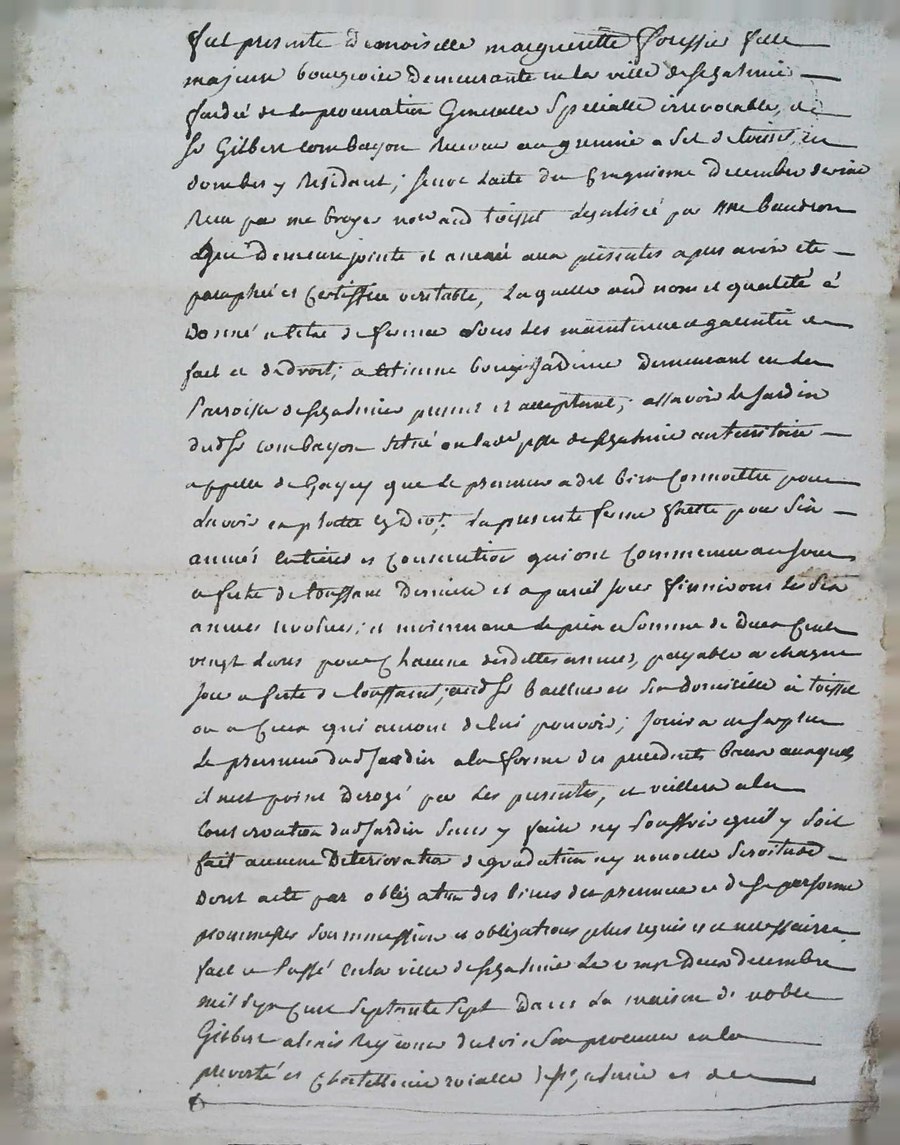 fut presente Demoiselle marguerette fille
majeure bourgeoise demeurante en la ville de
fondée de la procuration Generalle Specialle irrevocable, de
Sr Gilbert Combayon Receveur au grenier a Sel de toissei, en
dombes y Residant; Suivant lacte du Cinquieme decembre
Receu par me broyer nore aud toissei Legalisée par Mre baudron
qui demeure jointe et anexée aux presentes apres avoir ete
paraphée et Certiffiée veritable, Laquelle aud nom et qualité à
donné a titre de ferme Sous Les maintenue et garentie de
fait et de droit; a ettienne Jardinier demeurant en La
Parroisse de present et acceptant; assavoir Le Jardin
dud Sr Combayon Situé en lade psse de au territoire
appellé de que Le preneur a dit bien Connoître pour
Lavoir La presente ferme faitte pour Six
années Entieres et Consecutives qui ont Commencé au Jour
et feste de toussaint derniere et a pareil Jour finniront Les Six
années revolues; et moiennant Le prix et Somme de deux Cent
vingt Livres pour Chacune desdittes années, payable a chaque
Jour et feste de toussaint; aud Sr Bailleur en Son domicille à toissei
ou a Ceux qui auront de lui pouvoir; Jouira
Le preneur dud Jardin a la forme des precedents beaux auxquels
il nest point derogé par Les presentes, et veillera a la
Conservation dud Jardin Sans y faire ny Souffrir quil y Soit
fait aucune deterioration degradation ny nouvelle Servitude
dont acte par obligation des biens du preneur et de Sa personne
promesses Soummissions et obligations plus requises et necessaires
fait et Passé en la ville de Le vingt deux decembre
mil Sept Cent Septante Sept dans La maison de noble
Gilbert du roi Son procureur en la
prevoté et Chatellenie roialle et de